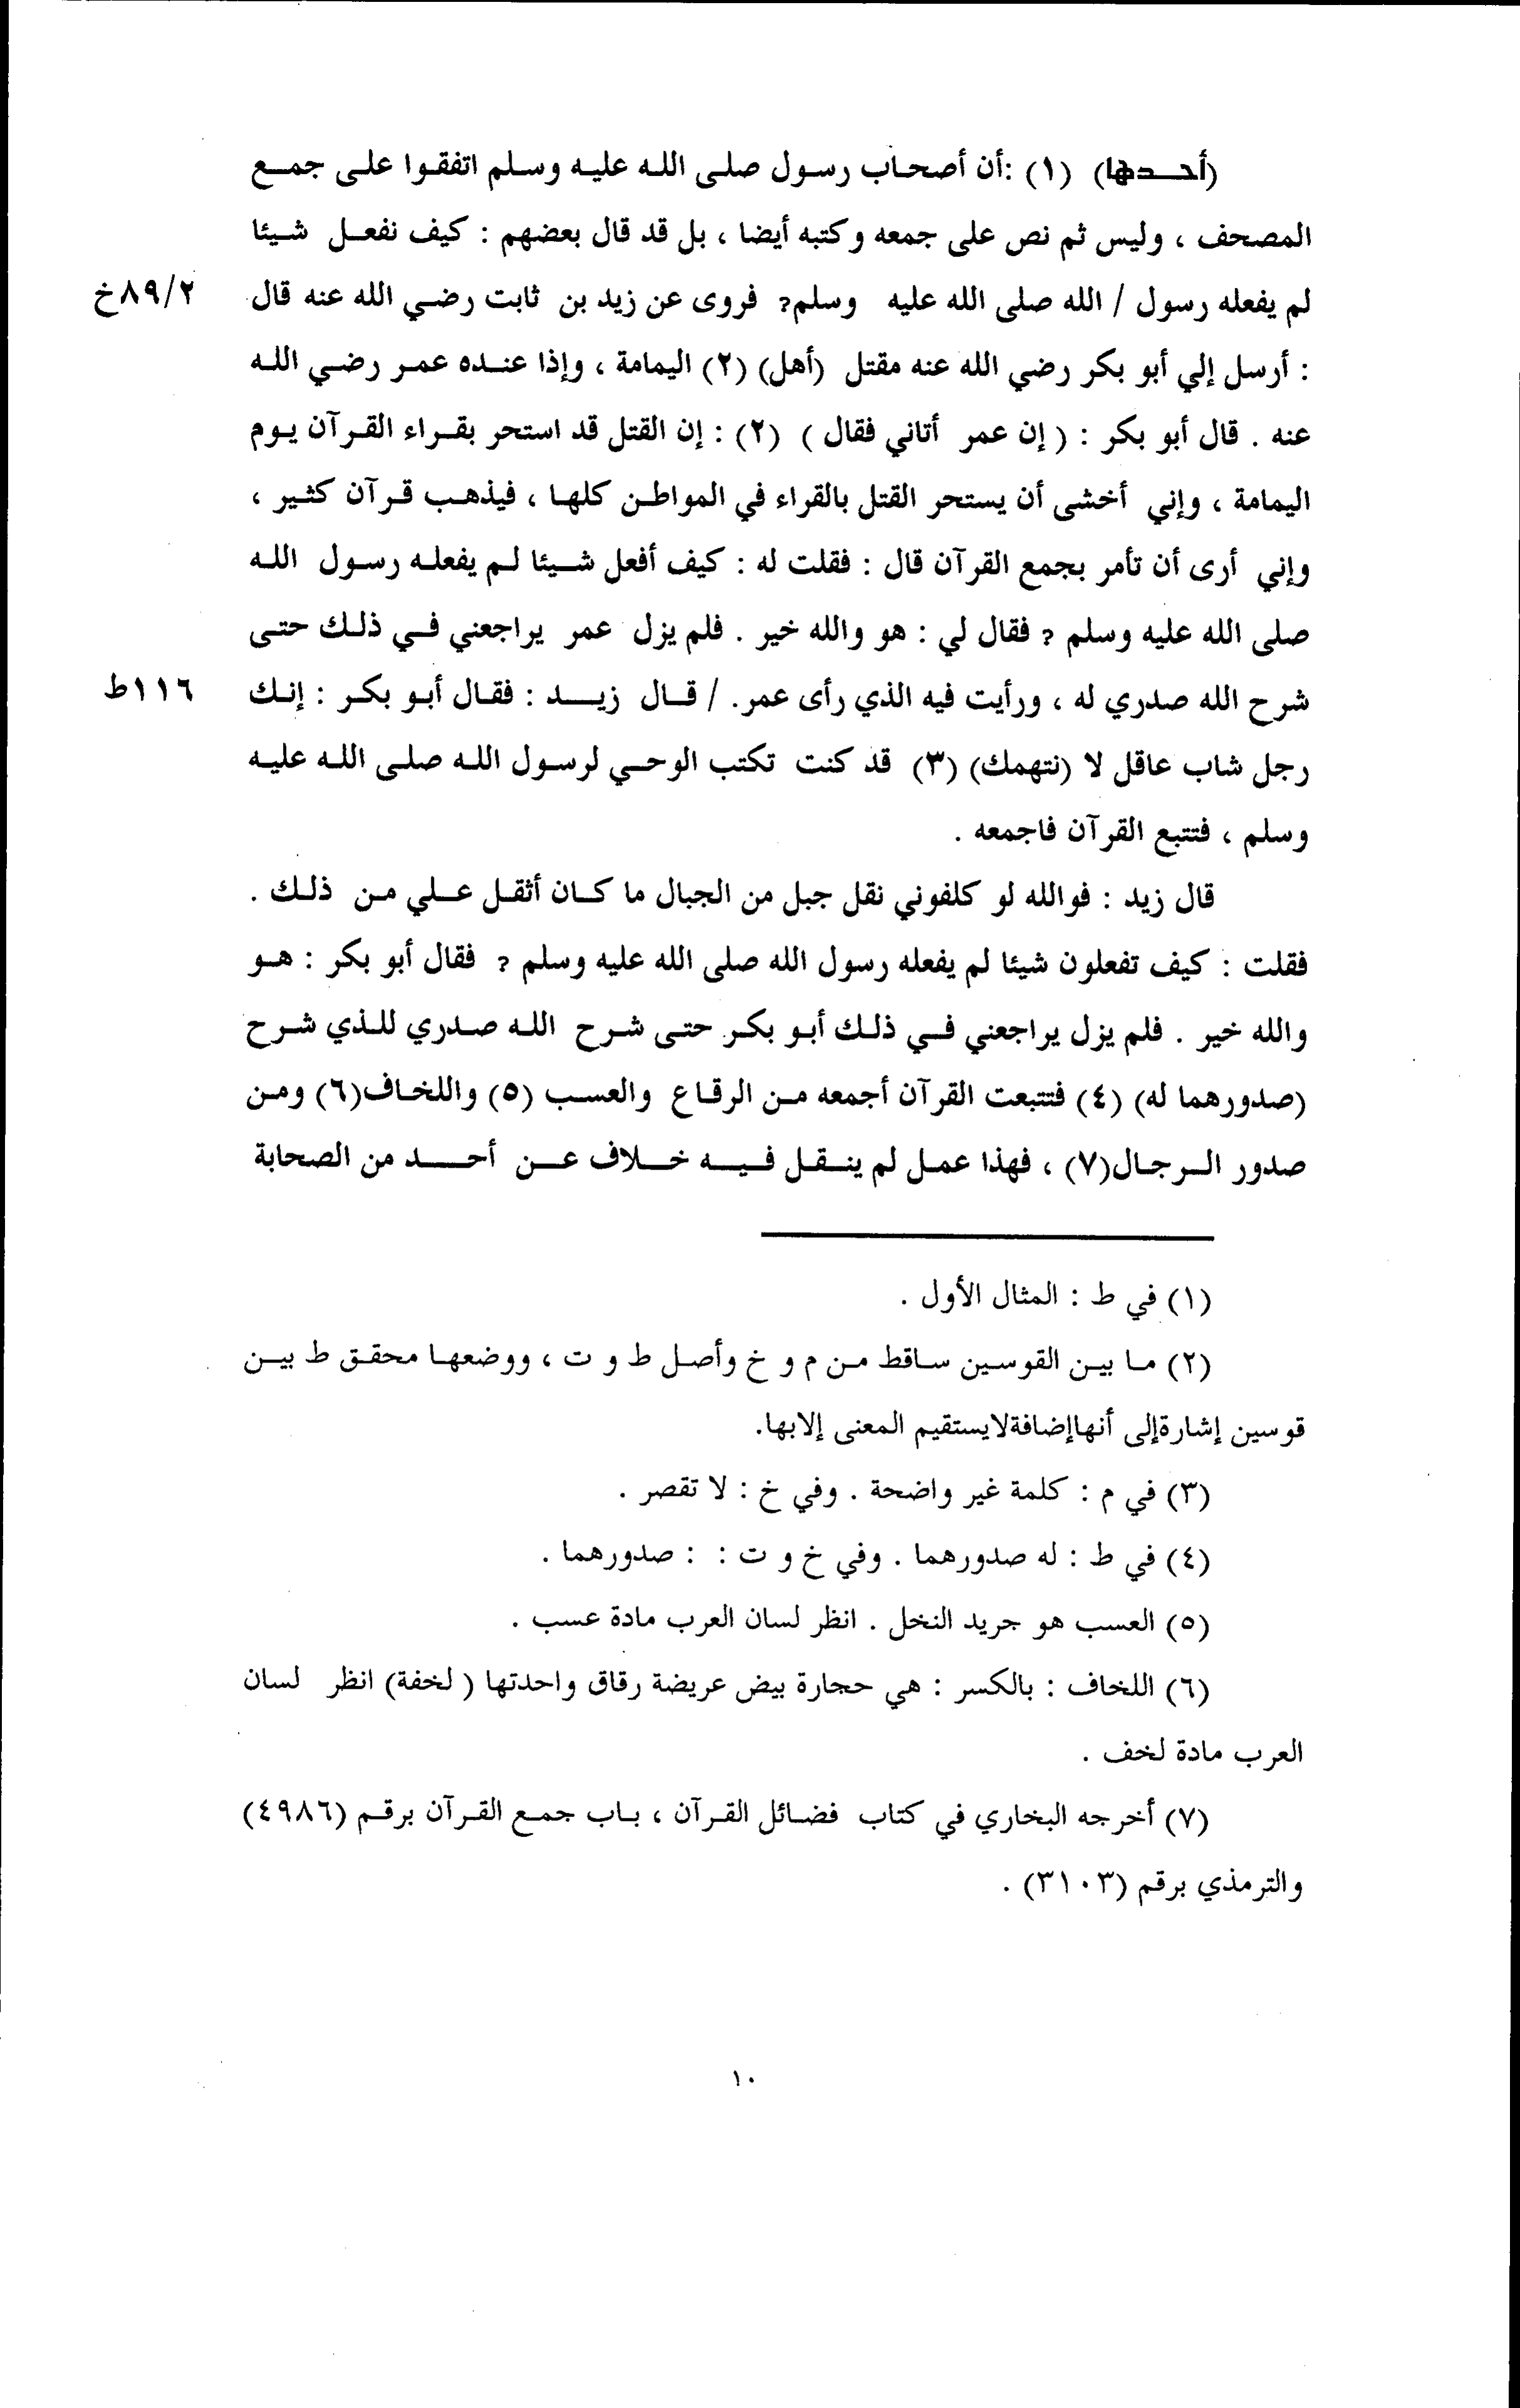 (أحدها) (١) :أن أصحاب رسول صلى الله عليه وسلم اتفقوا على جمع
المصحف ، وليس ثم نص على جمعه وكتبه أيضا ، بل قد قال بعضهم : كيف نفعل شيئا
لم يفعله رسول / الله صلى الله عليه وسلم؟ فروى عن زيد بن ثابت رضي الله عنه قال ٨٩/٢خ
: أرسل إلي أبو بكر رضي الله عنه مقتل (أهل) (٢) اليمامة ، وإذا عنده عمر رضي الله
عنه . قال أبو بكر : ( إن عمر أتاني فقال ) (٢) : إن القتل قد استحر بقراء القرآن يوم
اليمامة ، وإني أخشى أن يستحر القتل بالقراء في المواطن كلها ، فيذهب قرآن كثير ،
وإني أرى أن تأمر بجمع القرآن قال : فقلت له : كيف أفعل شيئا لم يفعله رسول الله
صلى الله عليه وسلم ؟ فقال لي : هو والله خير . فلم يزل عمر يراجعني في ذلك حتى
شرح الله صدري له ، ورأيت فيه الذي رأى عمر. / قال زيد : فقال أبو بكر : إنك ١١٦ط
رجل شاب عاقل لا (نتهمك) (٣) قد كنت تكتب الوحي لرسول الله صلى الله عليه
وسلم ، فتتبع القرآن فاجمعه .
قال زيد : فوالله لو كلفوني نقل جبل من الجبال ما كان أثقل علي من ذلك .
فقلت : كيف تفعلون شيئا لم يفعله رسول الله صلى الله عليه وسلم ؟ فقال أبو بكر : هو
والله خير . فلم يزل يراجعني في ذلك أبو بكر حتى شرح الله صدري للذي شرح
(صدورهما له) (٤) فتتبعت القرآن أجمعه من الرقاع والعسب (٥) واللخاف(٦) ومن
صدور الرجال(٧) ، فهذا عمل لم ينقل فيه خلاف عن أحد من الصحابة
(١) في ط : المثال الأول .
(٢) ما بين القوسين ساقط من م و خ وأصل ط و ت ، ووضعها محقق ط بين
قوسين إشارةإلى أنهاإضافةلايستقيم المعنى إلابها.
(٣) في م : كلمة غير واضحة . وفي خ : لا تقصر .
(٤) في ط : له صدورهما . وفي خ و ت : : صدورهما .
(٥) العسب هو جريد النخل . انظر لسان العرب مادة عسب .
(٦) اللخاف : بالكسر : هي حجارة بيض عريضة رقاق واحدتها ( لخفة) انظر لسان
العرب مادة لخف .
(٧) أخرجه البخاري في كتاب فضائل القرآن ، باب جمع القرآن برقم (٤٩٨٦)
والترمذي برقم (٣١٠٣) .
١٠